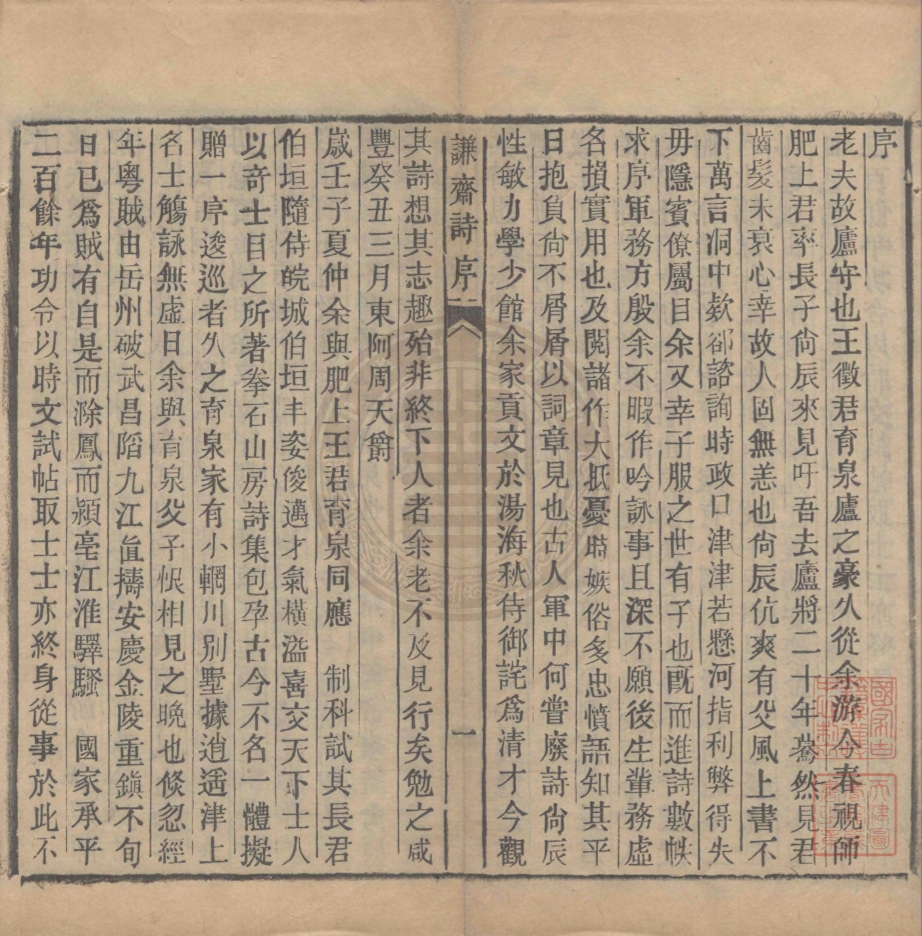 序
老夫故廬守也王徵君育泉廬之豪久從余游今春視師
肥上君率長子尙辰來見吁吾去廬將二十年驀然見君
齒髮未衰心幸故人固無恙也尙辰伉爽有父風上書不
下萬言洞中欵郤諮詢時政口津津若懸河指利弊得失
毋隱賓僚屬目余又幸子服之世有子也旣而進詩數帙
求序軍務方殷余不暇作吟詠事且深不願後生輩務虛
名損實用也及閱諸作大抵憂時嫉俗多忠憤語知其平
日抱負尙不屑屑以詞章見也古人軍中何嘗廢詩尙辰
性敏力學少館余家貢文於湯海秋侍御詫爲清才今觀
謙齋詩序
一
其詩想其志趣殆非終下人者余老不及見行矣勉之咸
豐癸丑三月東阿周天爵
歲壬子夏仲余與肥上王君育泉同應　制科試其長君
伯垣隨侍皖城伯垣丰姿俊邁才氣橫溢喜交天下士人
以奇士目之所著拳石山房詩集包孕古今不名一體擬
贈一序逡巡者久之育泉家有小輞川別墅據逍遙津上
名士觴詠無虛日余與育泉父子恨相見之晚也倐忽經
年粵賊由岳州破武昌陷九江直擣安慶金陵重鎭不旬
日已爲賊有自是而滁鳳而潁亳江淮驛騷　國家承平
二百餘年功令以時文試帖取士士亦終身從事於此不